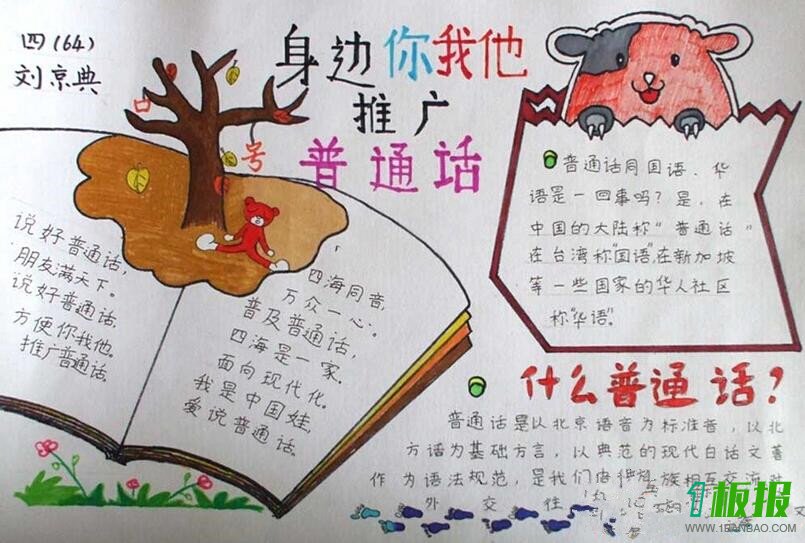 四(64)
刘京典
身边你我他
推广
普通话
口
号
说好普通话,
朋友满天下。
说好普通话,
方便你我他。
推广普通话。
四海同音,
万众一心。
普及普通话,
四海是一家。
面向现代化。
我是中国娃,
爱说普通话。
普通话同国语、华
语是一回事吗?是,在
中国的大陆称"普通话"
在台湾称"国语",在新加坡
等一些国家的华人社区
称"华语"。
什么普通话?
普通话是以北京语音为标准音,以北
方话为基础方言,以典范的现代白话文著
作为语法规范,是我们
族相互交流
外交
板报
WWW.1BANBAO.COM